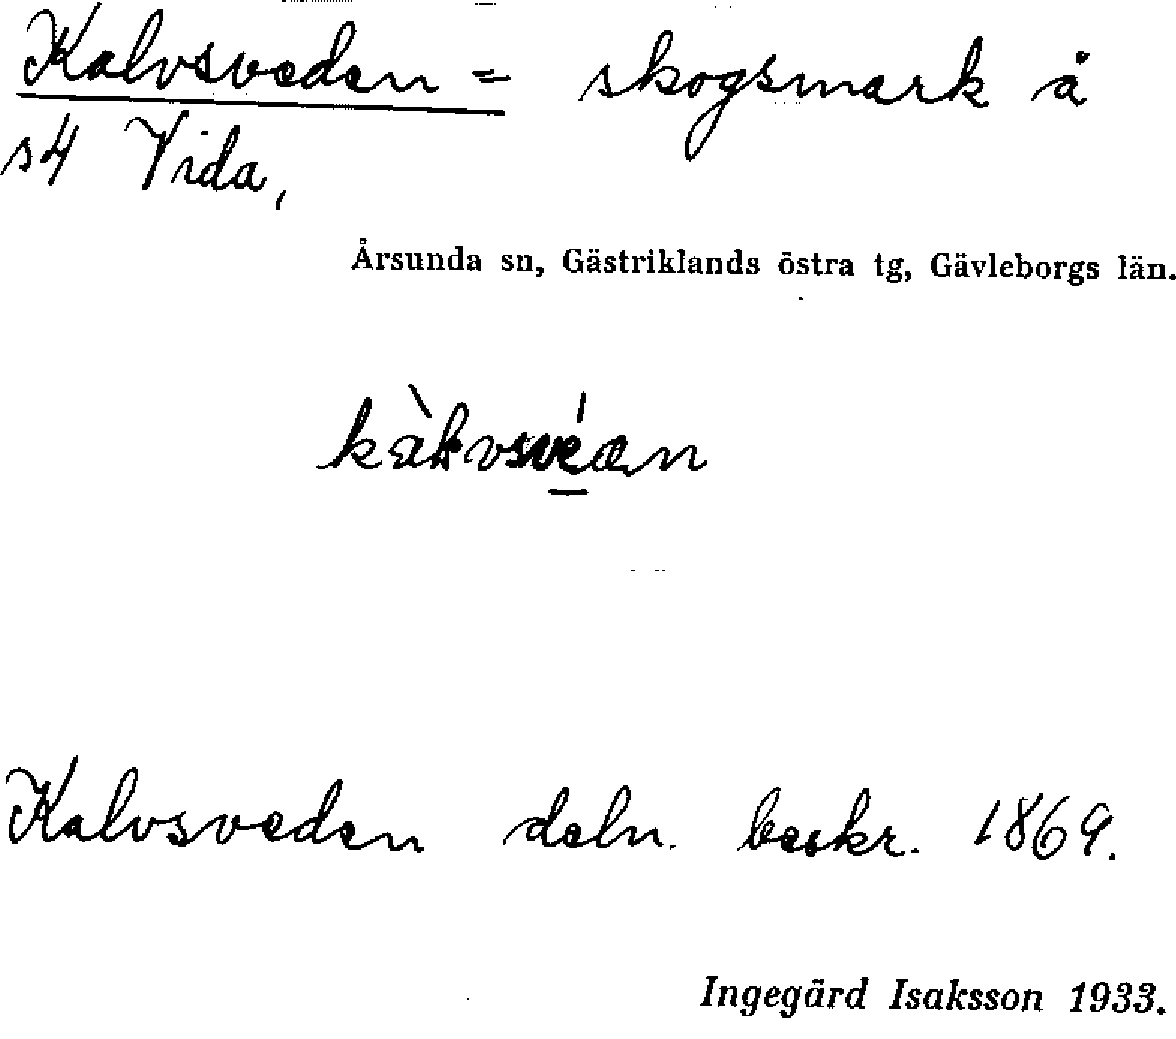 Kalvsveden = skogsmark å
s4 Vida,
Årsunda sn, Gästriklands östra tg, Gävleborgs län.
Kalvsveden deln. beskr. 1869.
Ingegärd Isaksson 1933.